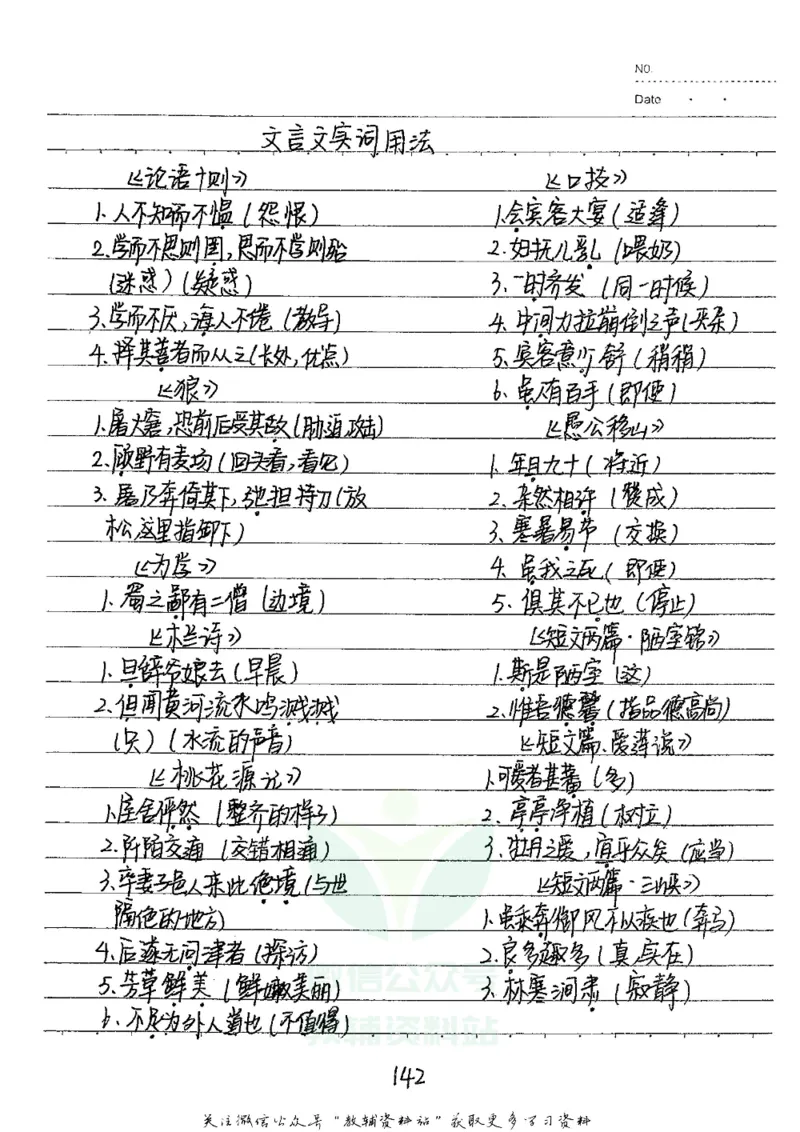 NO.
Date
文言文实词用法
《论语十则》
1.人不知而不愠(怨恨)
2.学而不思则罔,思而不学则殆
(迷惑)(疑惑)
3.学而不厌,诲人不倦(教导)
4.择其善者而从之(长处,优点)
《狼》
1.屠大窘,恐前后受其敌(胁迫,攻击)
2.顾野有麦场(回头看,看见)
3.屠乃奔倚其下,弛担持刀(放
松,这里指卸下)
《为学》
1.蜀之鄙有二僧(边境)
《木兰诗》
1.旦辞爷娘去(早晨)
2.但闻黄河流水鸣溅溅
(只)(水流的声音)
《桃花源记》
1.屋舍俨然(整齐的样子)
2.阡陌交通(交错相通)
3.率妻子邑人来此绝境(与世
隔绝的地方)
4.后遂无问津者(探访)
5.芳草鲜美(鲜嫩美丽)
6.不足为外人道也(不值得)
《口技》
1.会宾客大宴(适逢)
2.妇抚儿乳(喂奶)
3.一时齐发(同一时候)
4.中间力拉崩倒之声(夹杂)
5.宾客意少舒(稍稍)
6.虽人有百手(即使)
《愚公移山》
1.年且九十(将近)
2.杂然相许(赞成)
3.寒暑易节(交换)
4.虽我之死(即使)
5.惧其不已也(停止)
《短文两篇·陋室铭》
1.斯是陋室(这)
2.惟吾德馨(指品德高尚)
《短文两篇·爱莲说》
1.可爱者甚蕃(多)
2.亭亭净植(树立)
3.牡丹之爱,宜乎众矣(应当)
《短文两篇·三峡》
1.虽乘奔御风不以疾也(奔马)
2.良多趣多(真,实在)
3.林寒涧肃(寂静)
微信公众号
教辅资料站
142
关注微信公众号"教辅资料站"获取更多学习资料